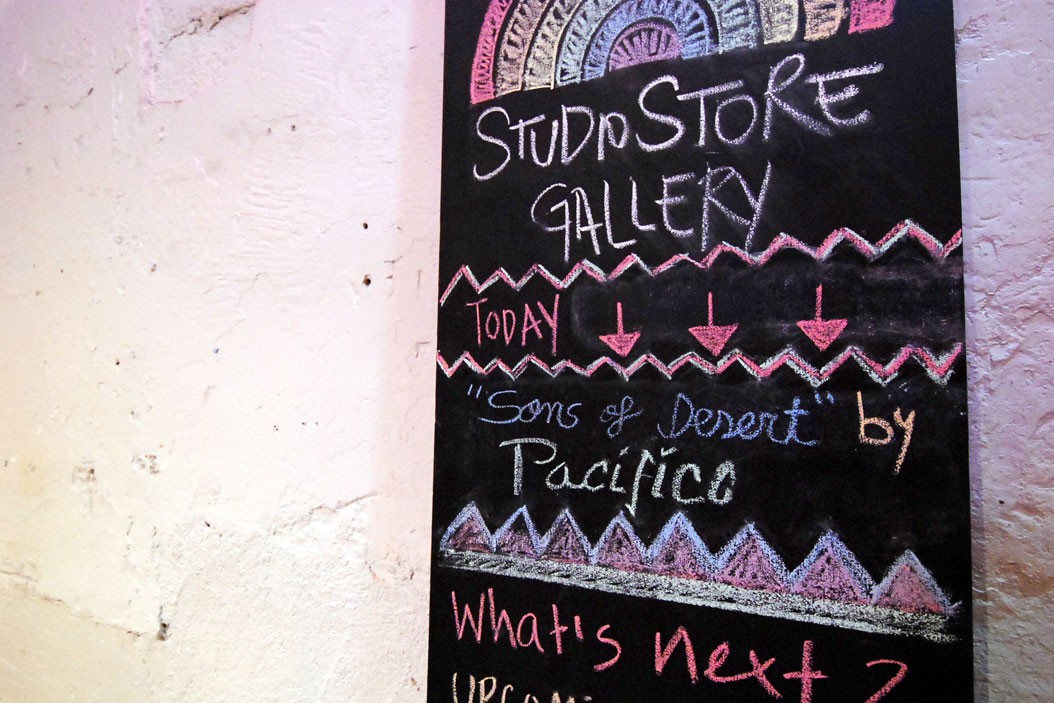 STUDIO STORE
GALLERY
TODAY
"Sons of Desert" by
Pacifico
What's next?
UPCOMI